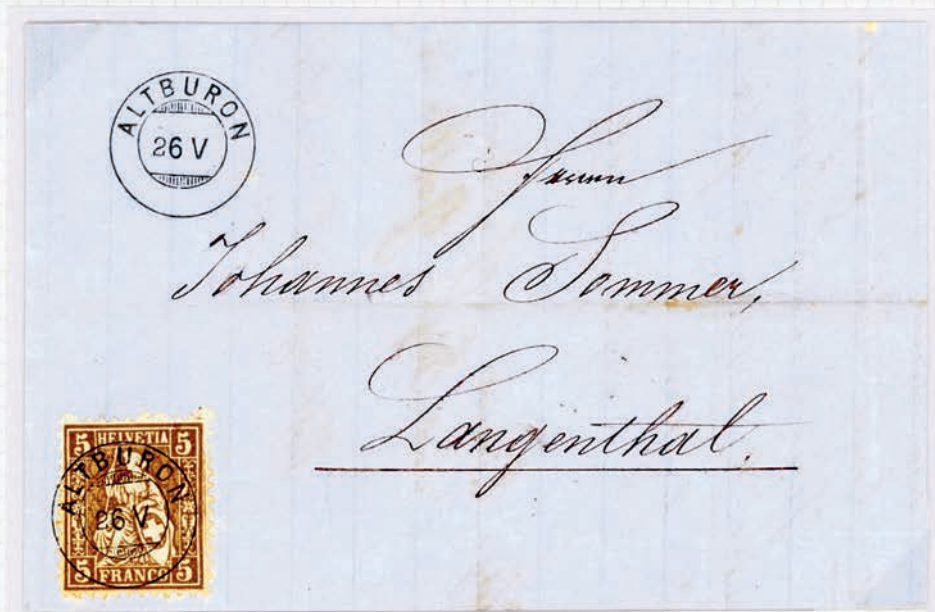 ALTBURON
26 V
Herrn
Johannes Sommer,
Langenthal.
5 HELVETIA 5
ALTBURON
26 V
5 FRANCO 5